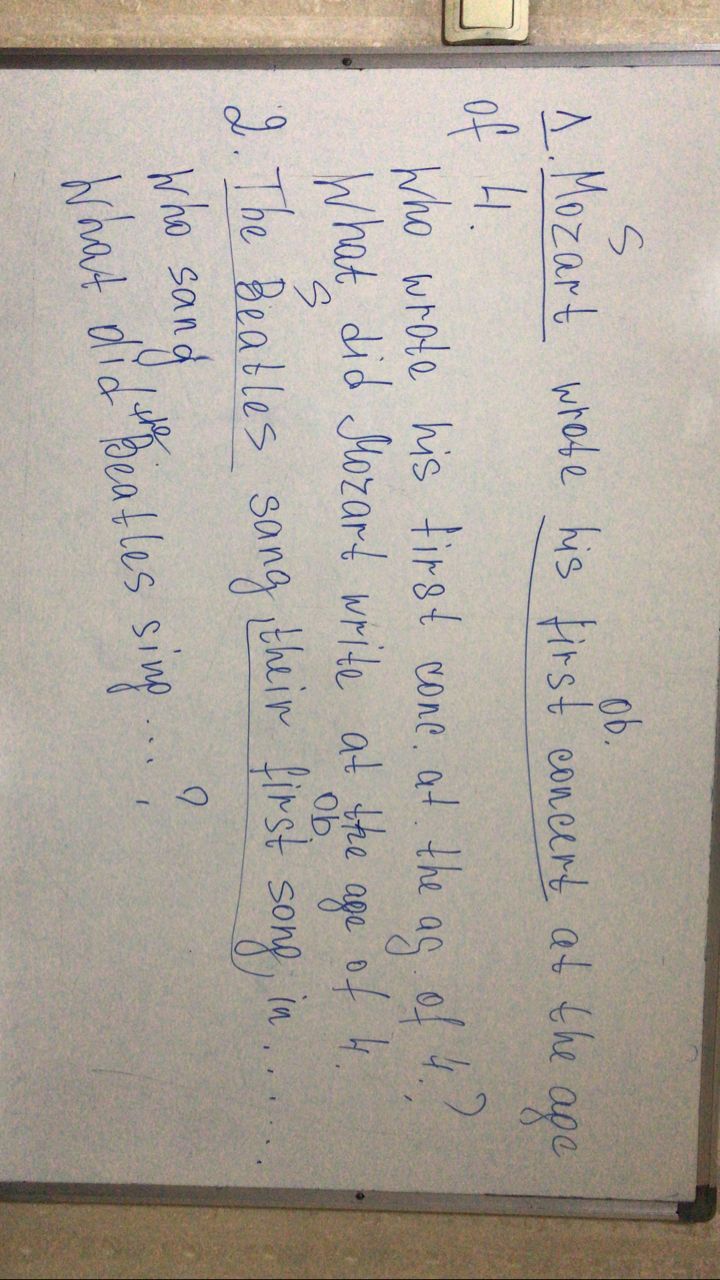 S ob.
1. Mozart wrote his first concert at the age
of 4.
Who wrote his first conc. at the ag. of 4.?
What did Mozart write at the age of 4.
S ob
2. The Beatles sang their first song, in.....
Who sang ?
What did the Beatles sing...